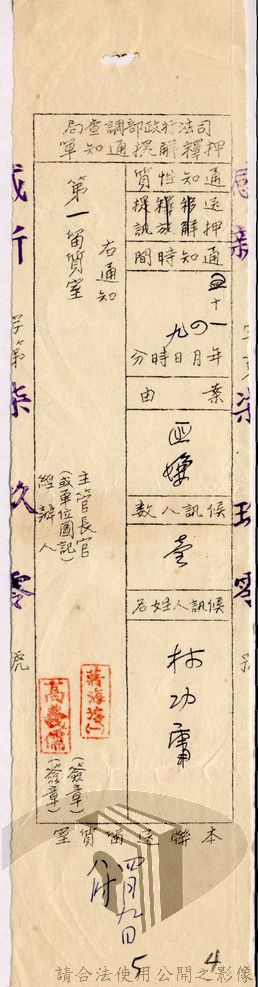 司法行政部調查局
押釋解提通知單
通知性質
還押
解帛
釋放
提訊
通知時間
五十一年四月九日時分
案由
匪嫌
候訊人數
壹
候訊人姓名
林功庸
右通知
第一留質室
主管長官
(或單位圖記)
經辦人
(簽章)
(簽章)
高義儒
本聯送留質室
字第
柒玖零
號
四月九日
八时
5
4
請合法使用公開之影像